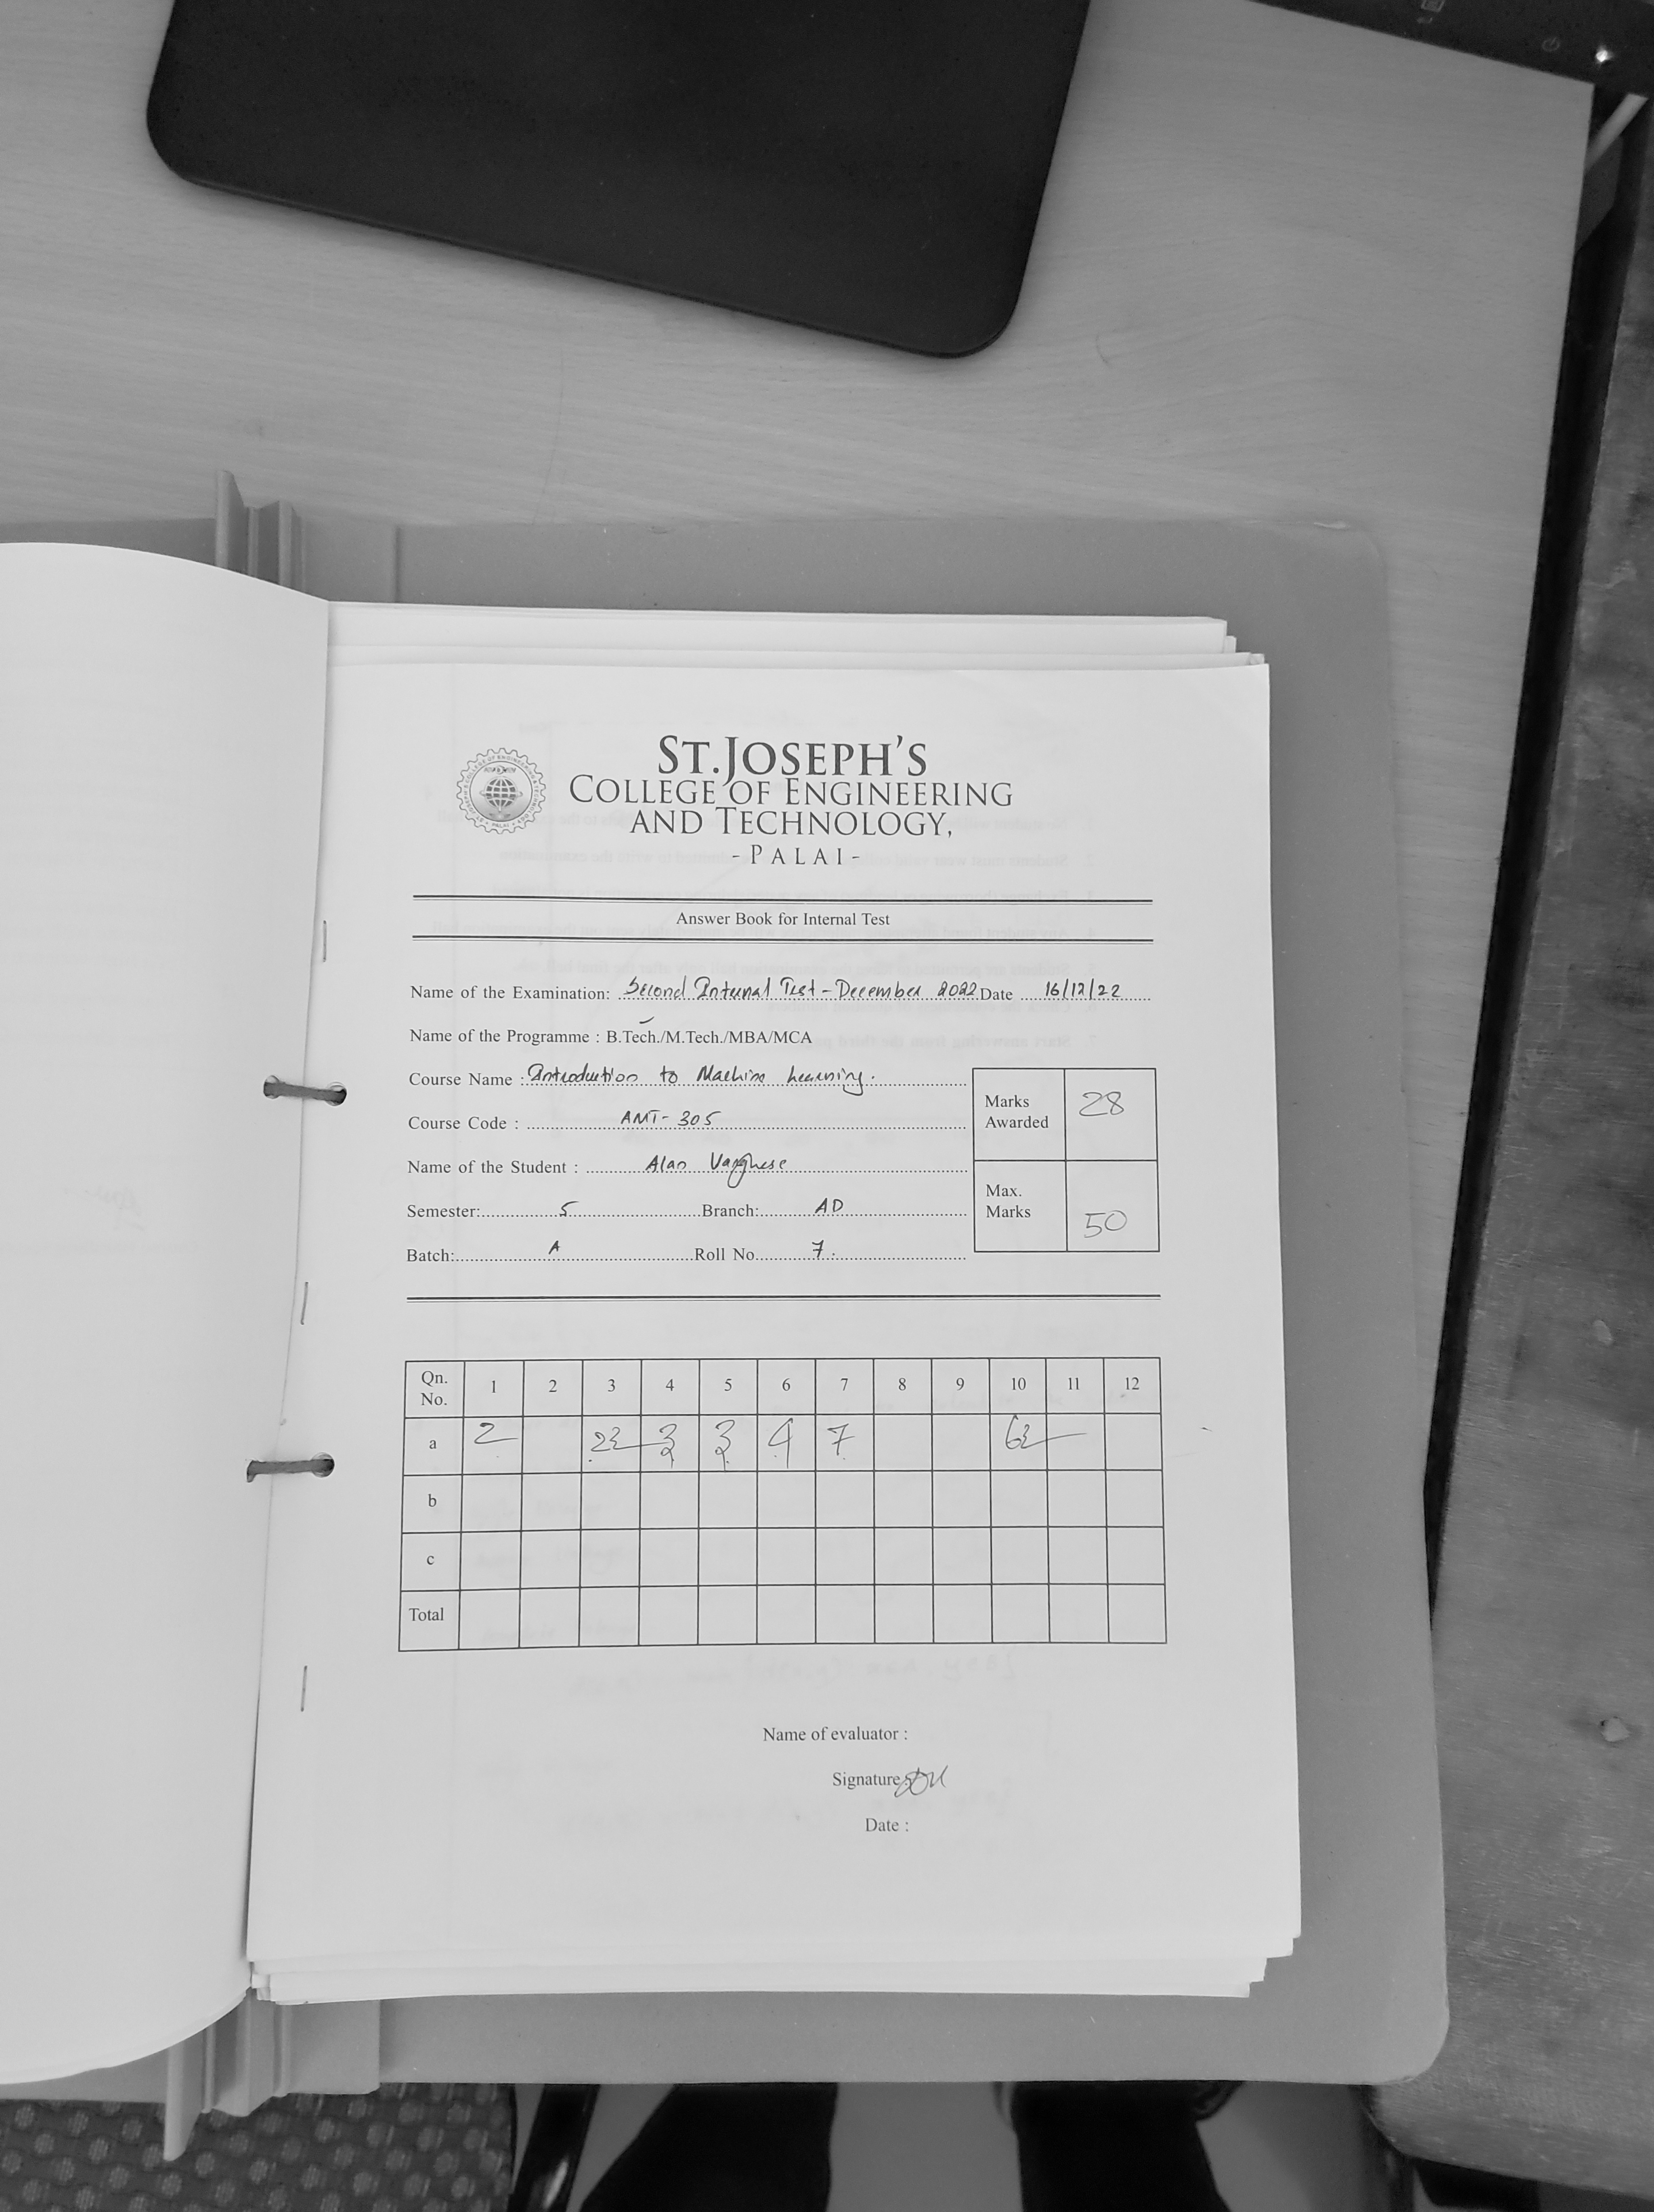 ST.JOSEPH'S
COLLEGE OF ENGINEERING
AND TECHNOLOGY,
- PALAI -
Answer Book for Internal Test
Name of the Examination: Second Internal Test - December 2022 Date 16/12/22
Name of the Programme : B.Tech./M.Tech./MBA/MCA
Course Name : Introduction to Machine Learning.
Course Code : AMT-305
Name of the Student : Alan Varghese
Semester: 5 Branch: AD
Batch: A Roll No. 7
Marks Awarded 28
Max. Marks 50
Qn. No. 1 2 3 4 5 6 7 8 9 10 11 12
a 2 3 3 4 7
b
c
Total
Name of evaluator :
Signature :
Date :